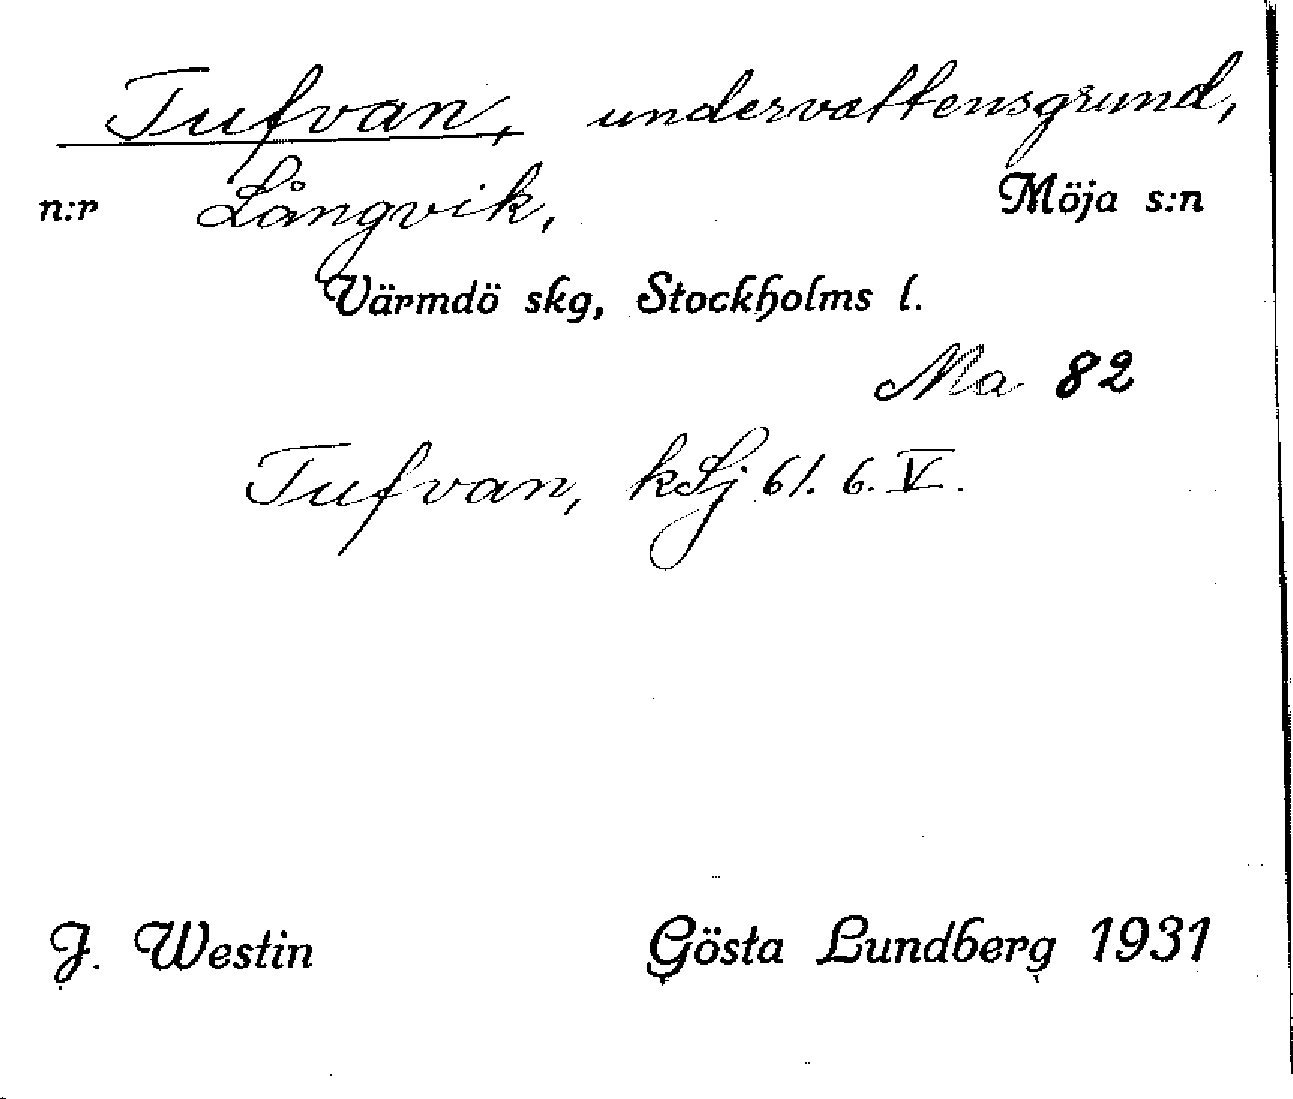 Tufvan, undervattensgrund,
n:r Långvik, Möja s:n
Värmdö skg, Stockholms l.
Ma 82
Tufvan, kSj 61. 6. V.
J. Westin Gösta Lundberg 1931